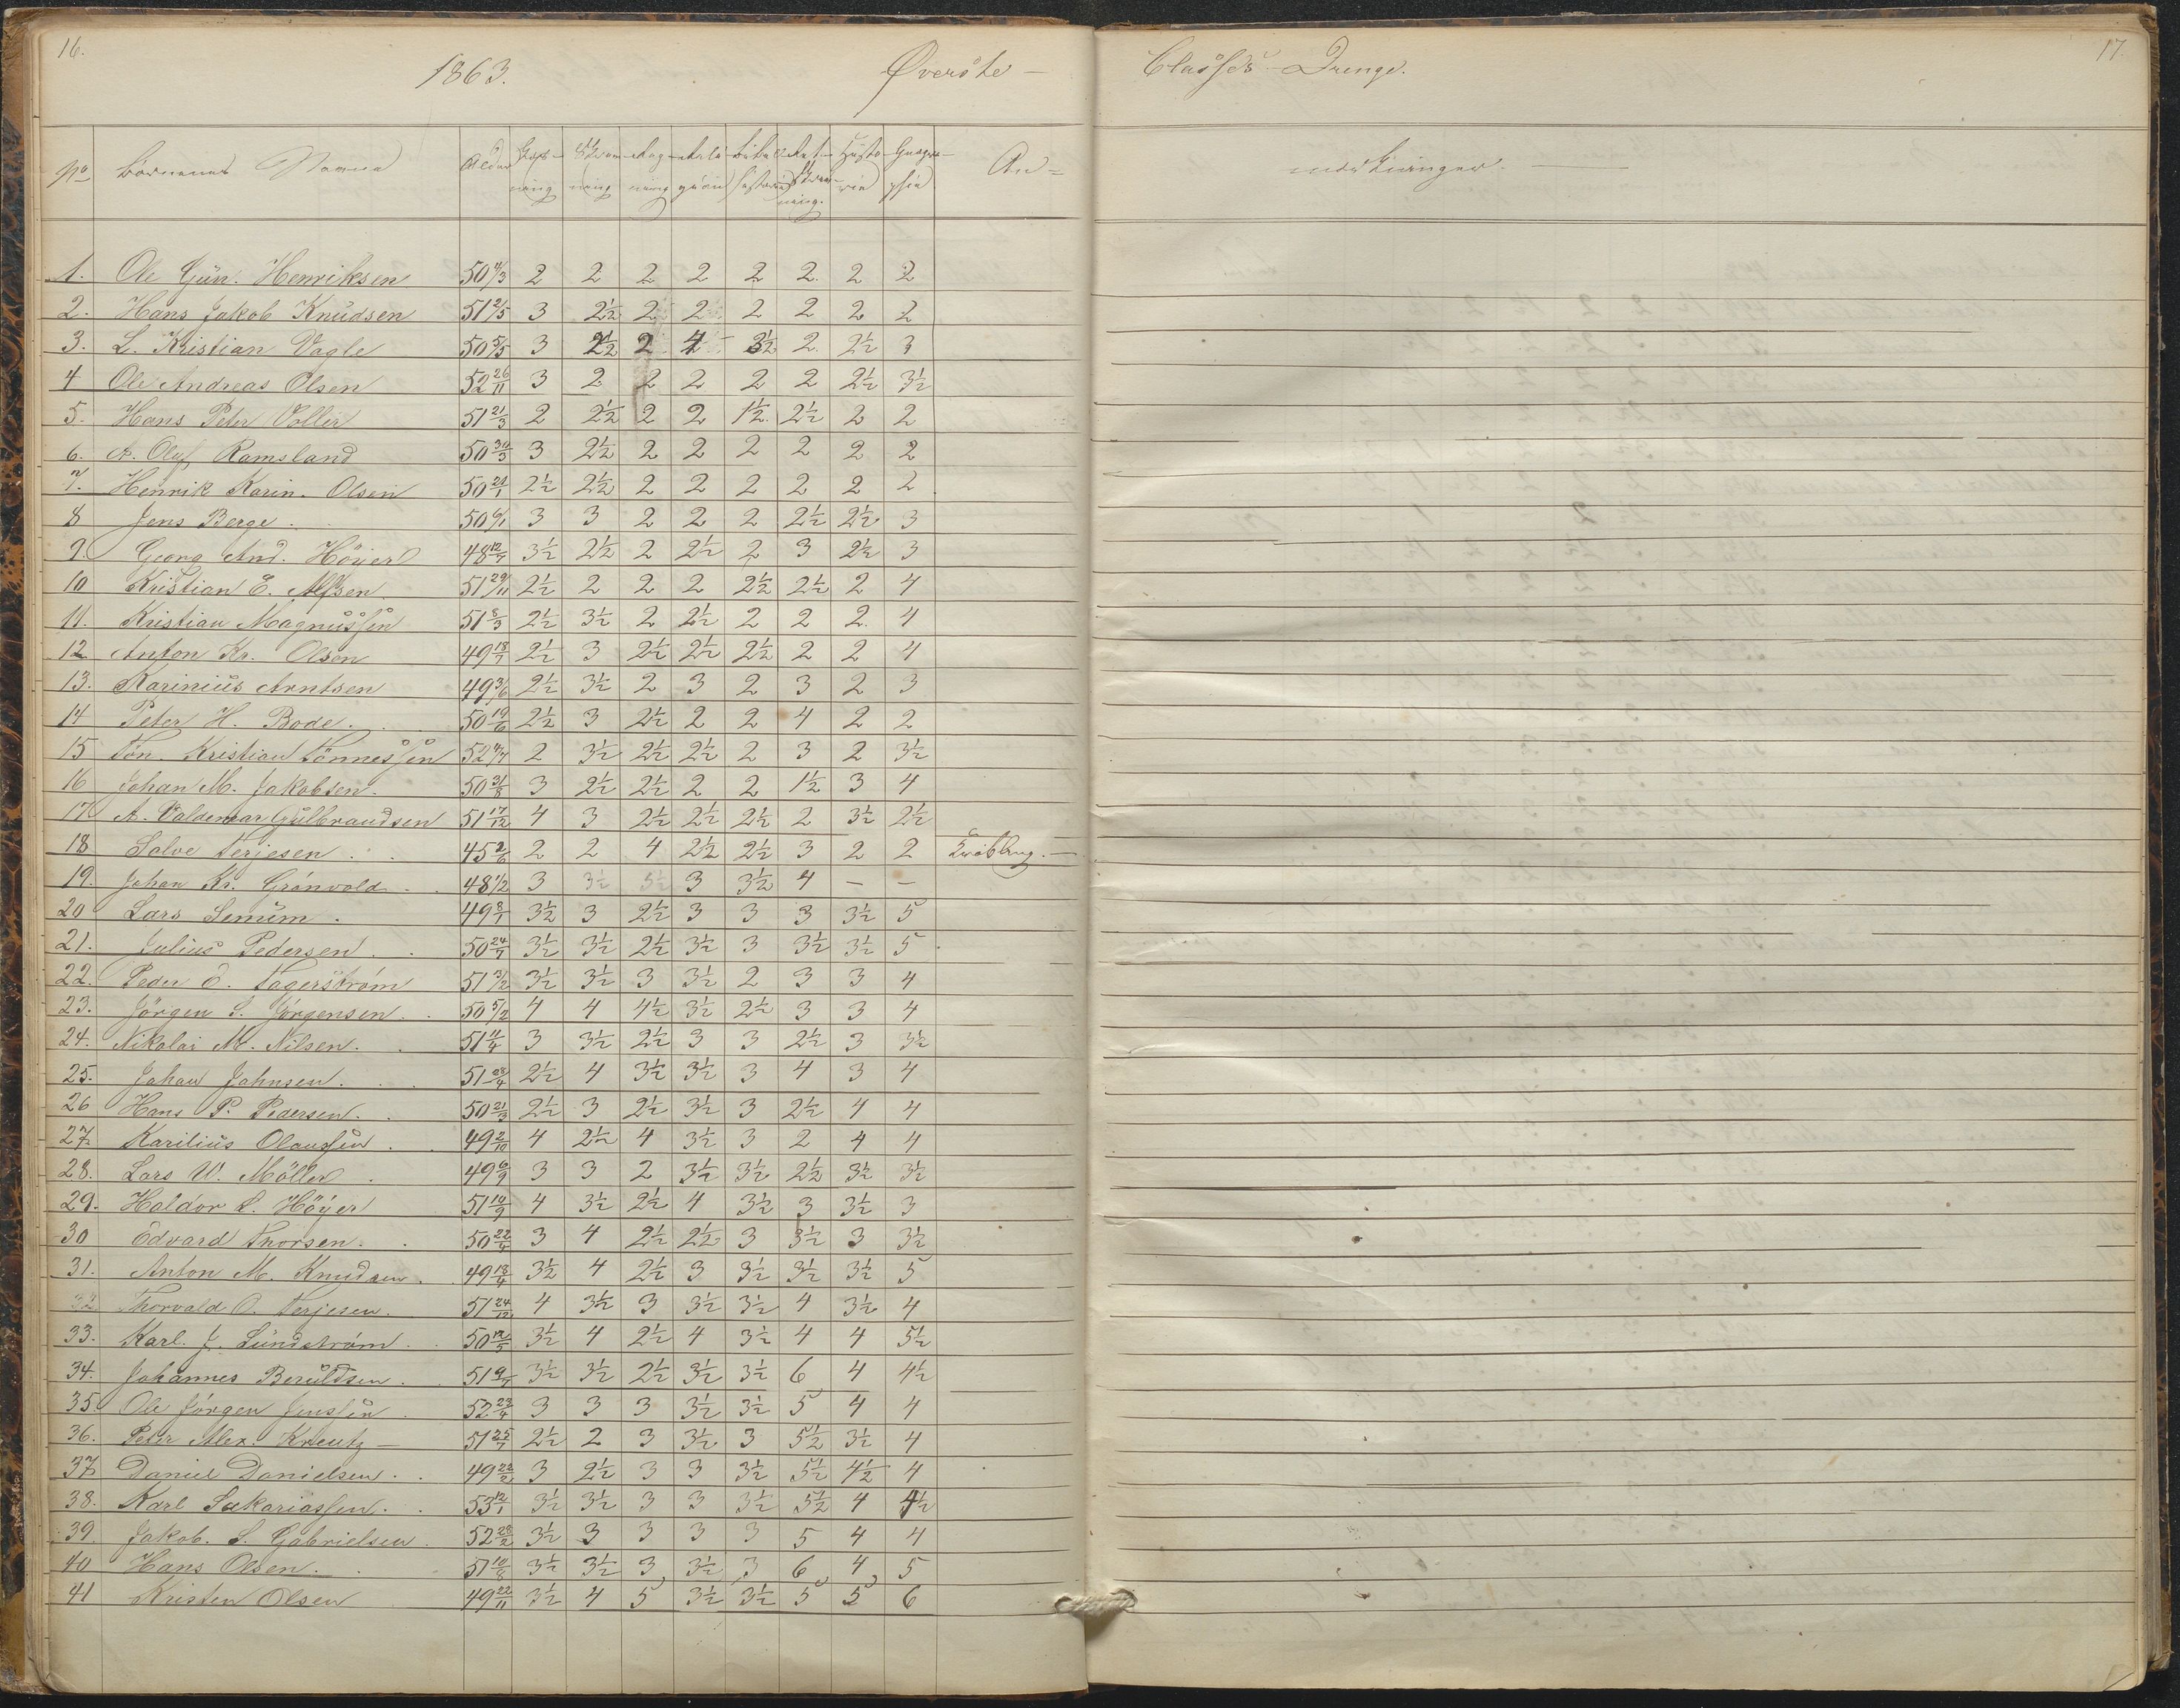 16.
1863.
Øverste –
Classes Drenge.
17.
No Børnenes Navne Alder Regning Histo-rie Geogra-phie An=
mærkninger.
1. Ole Gün. Henriksen 50 4/3 2 2 2 2 2 2 2 2
2. Hans Jakob Knudsen 51 2/5 3 2½ 2 2 2 2 2 2
3. L. Kristian Vagle 50 5/5 3 2½ 2 4 3½ 2 2½ 3
4 Ole Andreas Olsen 52 26/11 3 2 2 2 2 2 2½ 3½
5. Hans Peter Voller 51 21/3 2 2½ 2 2 1½ 2½ 2 2
6. A. Oluf Ramsland 50 30/3 3 2½ 2 2 2 2 2 2
7. Henrik Karin. Olsen 50 21/1 2½ 2½ 2 2 2 2 2 2
8 Jens Berge. 50 6/1 3 3 2 2 2 2½ 2½ 3
9. Georg And. Höyer 48 12/7 3½ 2½ 2 2½ 2 3 2½ 3
10 Kristian E. Alfsen. 51 29/11 2½ 2 2 2 2½ 2½ 2 4
11. Kristian Magnussen 51 8/3 2½ 3½ 2 2½ 2 2 2 4
12 Anton Kr. Olsen 49 18/7 2½ 3 2½ 2½ 2½ 2 2 4
13. Karinius Arntsen 49 3/6 2½ 3½ 2 3 2 3 2 3
14 Peter H. Bode. 50 19/6 2½ 3 2½ 2 2 4 2 2
15 Tön. Kristian Tönnessen 52 4/7 2 3½ 2½ 2½ 2 3 2 3½
16 Johan M. Jakobsen. 50 31/8 3 2½ 2½ 2 2 1½ 3 4
17 A. Valdemar Gulbrandsen 51 17/12 4 3 2½ 2½ 2½ 2 3½ 2½
18 Salve Terjesen. 45 2/6 2 2 4 2½ 2½ 3 2 2
19. Johan Kr. Grönvold. 48 1/2 3 3½ 3½ 3 3½ 4 – –
20 Lars Semum. 49 8/1 3½ 3 2½ 3 3 3 3½ 5
21. Julius Pedersen. 50 24/7 3½ 3½ 2½ 3½ 3 3½ 3½ 5
22. Peder E. Fagerström 51 3/2 3½ 3½ 3 3½ 2 3 3 4
23. Jörgen S. Jörgensen. 50 5/2 4 4 4½ 3½ 2½ 3 3 4
24. Nikolai M. Nilsen. 51 11/4 3 3½ 2½ 3 3 2½ 3 3½
25. Johan Johnsen. 51 28/4 2½ 4 3½ 3½ 3 4 3 4
26 Hans P. Pedersen. 50 21/3 2½ 3 2½ 3½ 3 2½ 4 4
27. Karilius Olaussen. 49 2/10 4 2½ 4 3½ 3 2 4 4
28. Lars W. Möller. 49 6/9 3 3 2 3½ 3½ 2½ 3½ 3½
29. Haldor L. Höyer 51 10/9 4 3½ 2½ 4 3½ 3 3½ 3
30 Edvard Thorsen. 50 22/4 3 4 2½ 2½ 3 3½ 3 3½
31. Anton M. Knudsen. 49 18/4 3½ 4 2½ 3 3½ 3½ 3½ 5
32 Thorvald O. Terjesen. 51 24/12 4 3½ 3 3½ 3½ 4 3½ 4
33. Karl. J. Lundström. 50 12/5 3½ 4 2½ 4 3½ 4 4 5½
34. Johannes Beruldsen. 51 3½ 3½ 2½ 3½ 3½ 6 4 4½
35 Ole Jörgen Jenssen. 52 23/4 3 3 3 3½ 3½ 5 4 4
36. Peter Alex. Kreutz – 51 25/7 2½ 2 3 3½ 3 5½ 3½ 4
37 Daniel Danielsen. 49 22/2 3 2½ 3 3 3½ 5½ 4½ 4
38. Karl Sakariassen. 53 12/1 3½ 3½ 3 3 3½ 5½ 4 4½
39. Jakob. S. Gabrielsen. 52 28/2 3½ 3 3 3 3 5 4 4
40 Hans Olsen. 51 10/8 3½ 3½ 3 3½ 3 6 4 5
41 Kristen Olsen 49 22/11 3½ 4 5 3½ 3½ 5 5 6